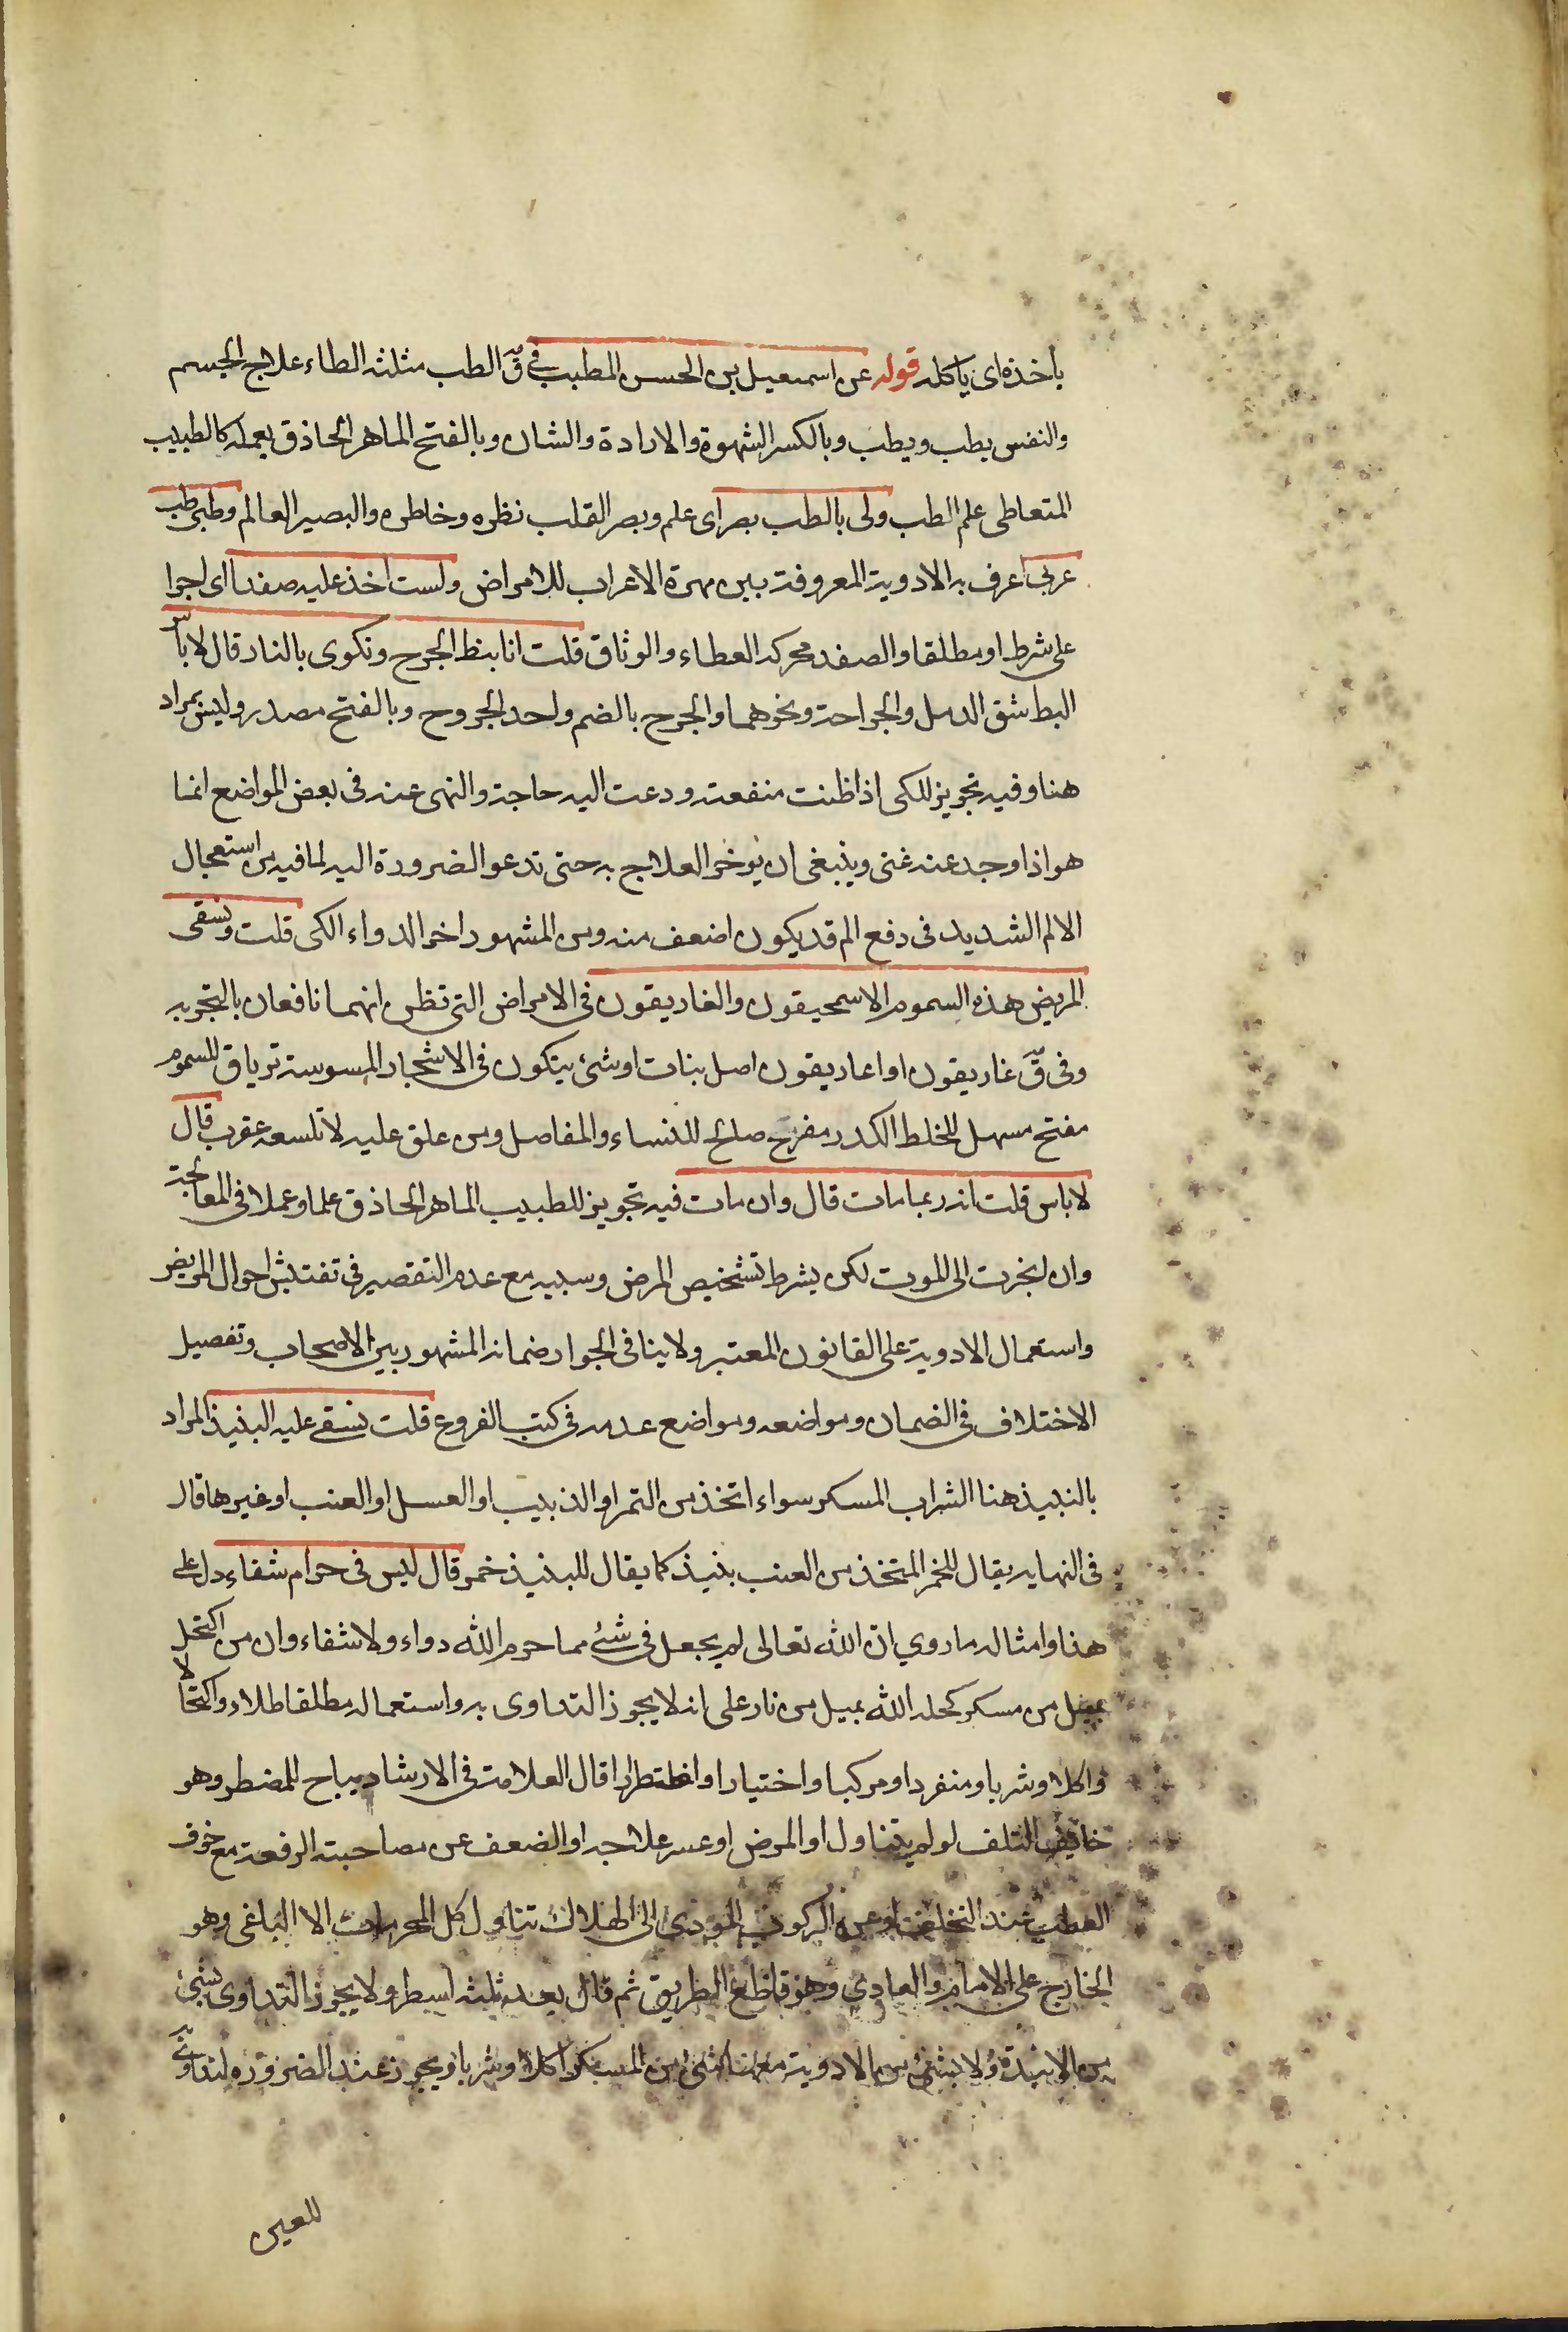 ياخذه اى ياكله قوله عن اسمعيل بن الحسن المطبب في ق الطب مثلثه الطاء علاج الجسم
والنفس يطب ويطب وبالكسر الشهوة والارادة والشان وبالفتح الماهر الحاذق بعمله كالطبيب
المتعاطى علم الطب ولى بالطب بصر اى علم وبصر القلب نظره وخاطره والبصير العالم وطبى طب
عربى اعرف به الادوية المعروفة بين مهرة الاعراب للامراض ولست اخذ عليه صفدا اى اجرا
على شرط او مطلقا والصفد محركه العطاء والوثاق قلت انا بنط الجرح ونكوى بالنار قال لا باس
البط شق الدمل والجراحة ونحوهما والجرح بالضم واحد الجروح وبالفتح مصدر وليس بمراد
هنا وفيه تجويز للكى اذا ظنت منفعته ودعت اليه حاجة والنهى عنه فى بعض المواضع انما
هو اذا وجد عنه غنى وينبغى ان يوخر العلاج به حتى تدعو الضرورة اليه لما فيه من استعجال
الالم الشديد فى دفع الم قد يكون اضعف منه ومن المشهور اخر الدواء الكى قلت ونسقى
المريض هذه السموم الاسمحيقون والغاريقون فى الامراض التى تظن انهما نافعان بالتجربه
وفى ق غاريقون او اغاريقون اصل نبات او شئ يتكون فى الاشجار المسوسة ترياق للسموم
مفتح مسهل للخلط الكدر مفرح صالح للنساء والمفاصل ومن علق عليه لا تلسعه عقرب قال
لا باس قلت انه ربما مات قال وان مات فيه تجويز للطبيب الماهر الحاذق علما وعملا فى المعالجة
وان انجرت الى الموت لكن بشرط تشخيص المرض وسببه مع عدم التقصير فى تفتيش احوال المريض
واستعمال الادوية على القانون المعتبر ولا ينافى الجواز ضمانه المشهور بين الاصحاب وتفصيل
الاختلاف فى الضمان ومواضعه ومواضع عدمه فى كتب الفروع قلت نسقى عليه النبيذ المراد
بالنبيذ هنا الشراب المسكر سواء اتخذ من التمر او الزبيب او العسل او العنب او غيرها قال
فى النهايه يقال للخمر المتخذ من العنب نبيذ كما يقال للنبيذ خمر قال ليس فى حرام شفاء دل على
هذا وامثاله ما روي ان الله تعالى لم يجعل فى شئ مما حرم الله دواء ولا شفاء وان من اكتحل
بميل من مسكر كحله الله بميل من نار على انه لا يجوز التداوى به واستعماله مطلقا طلاء واكتحالا
واكلا وشربا ومنفردا ومركبا واختيارا واضطرارا قال العلامة فى الارشاد يباح للمضطر وهو
خائف التلف لو لم يتناول او المرض او عسر علاجه او الضعف عن مصاحبته الرفعة مع خوف
العطب عند التخلف او عن الركوب المودى الى الهلاك تناول كل المحرمات الا الباغى وهو
الخارج على الامام والعادى وهو قاطع الطريق ثم قال بعد ثلثه اسطر ولا يجوز التداوى بشئ
من الانبذة ولا بشئ من الادوية معها شئ من المسكر اكلا وشربا ويجوز عند الضرورة التداوى به
للعين